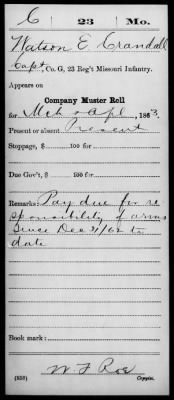 C 23 Mo.
Watson E Crandall
Capt, Co. G, 23 Reg't Missouri Infantry.
Appears on
Company Muster Roll
for Mch & Apl, 1863.
Present or absent Present
Stoppage, $ 100 for
Due Gov't, $ 100 for
Remarks: Pay due for re
sponsibility of arms
since Dec 31/62 to
date
Book mark:
W. F. Roe
(858) Copyist.